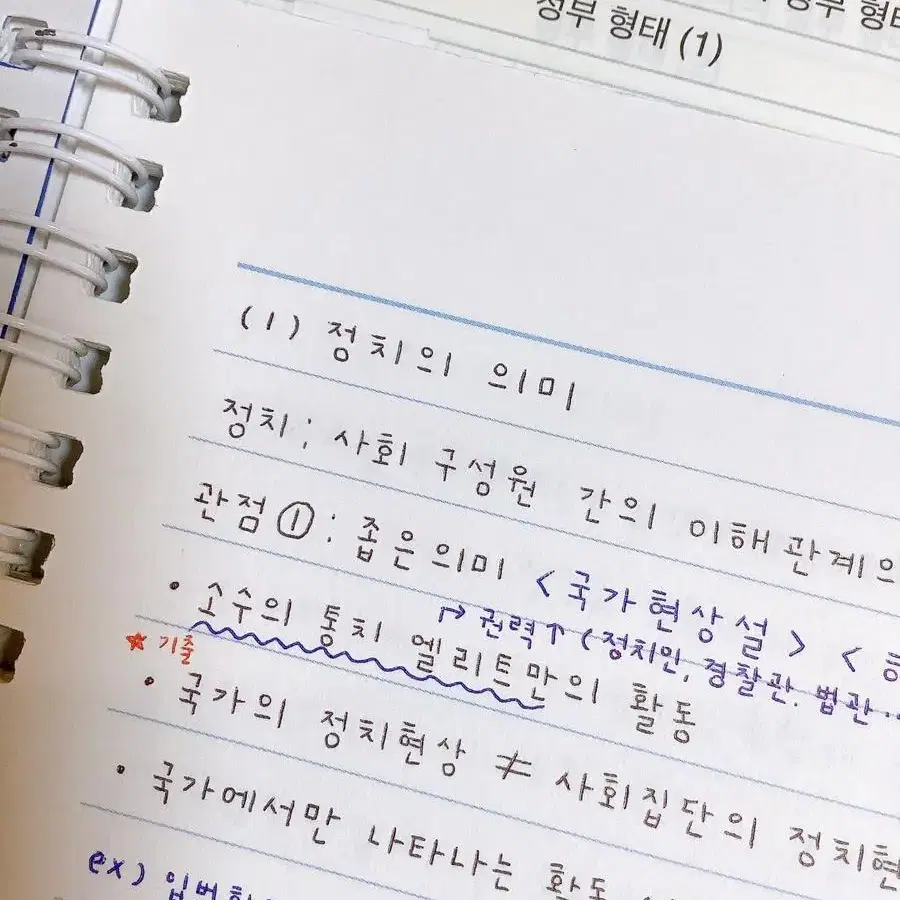 정부 형태 (1)
(1) 정치의 의미
정치 : 사회 구성원 간의 이해관계의
관점 ① : 좁은 의미 <국가현상설> <
↱ 권력↑ (정치인, 경찰관. 법관...
• 소수의 통치 엘리트만의 활동
★ 기출
• 국가의 정치현상 ≠ 사회집단의 정치현
• 국가에서만 나타나는 활동
ex)